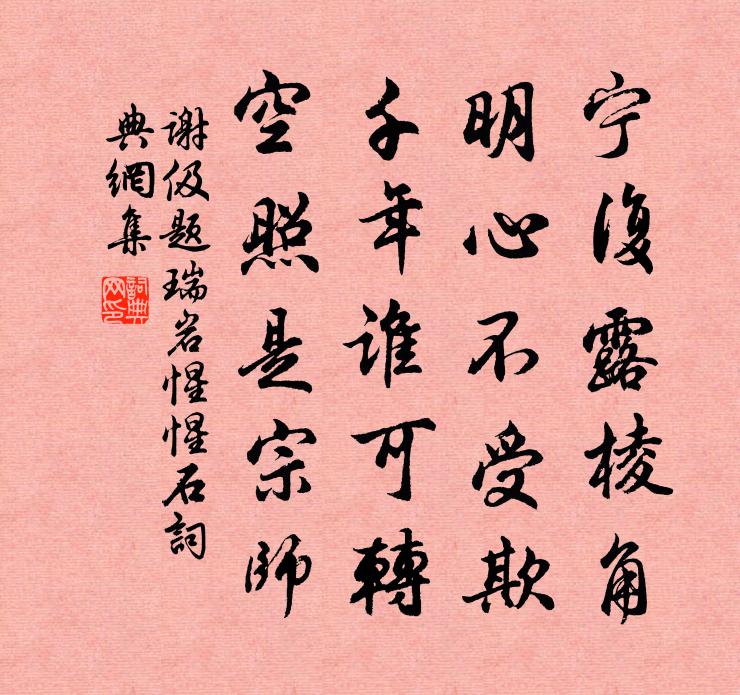 宁復露棱角
明心不受欺
千年谁可轉
空照是宗師
谢伋题瑞岩惺惺石詞
典網集
詞典网印